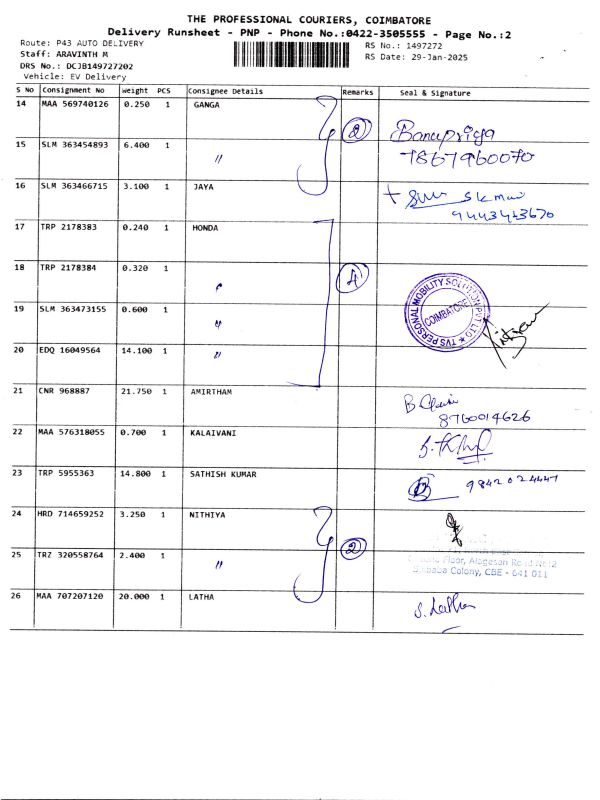 THE PROFESSIONAL COURIERS, COIMBATORE
Delivery Runsheet - PNP - Phone No.:0422-3505555 - Page No.:2
Route: P43 AUTO DELIVERY
RS No.: 1497272
Staff: ARAVINTH M
RS Date: 29-Jan-2025
DRS No.: DCJB149727202
Vehicle: EV Delivery
S No Consignment No Weight PCS Consignee Details Remarks Seal & Signature
14 MAA 569740126 0.250 1 GANGA
2 Banupriya
15 SLM 363454893 6.400 1 "
7867960070
16 SLM 363466715 3.100 1 JAYA
9443443670
17 TRP 2178383 0.240 1 HONDA
18 TRP 2178384 0.320 1 "
4
TVS PERSONAL MOBILITY SOLUTION PVT LTD
COIMBATORE
19 SLM 363473155 0.600 1 "
20 EDQ 16049564 14.100 1 "
21 CNR 968887 21.750 1 AMIRTHAM
8760014626
22 MAA 576318055 0.700 1 KALAIVANI
23 TRP 5955363 14.800 1 SATHISH KUMAR
9842024447
24 HRD 714659252 3.250 1 NITHIYA
2
25 TRZ 320558764 2.400 1 "
Floor, Alagesan Road
Saibaba Colony, CBE - 641 011
26 MAA 707207120 20.000 1 LATHA
S. Latha